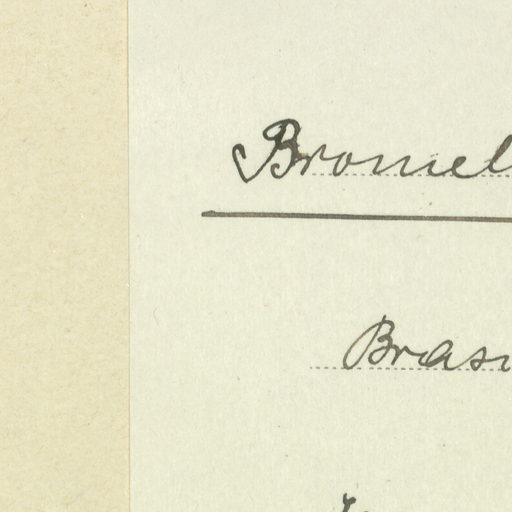 Bromel
Brasi